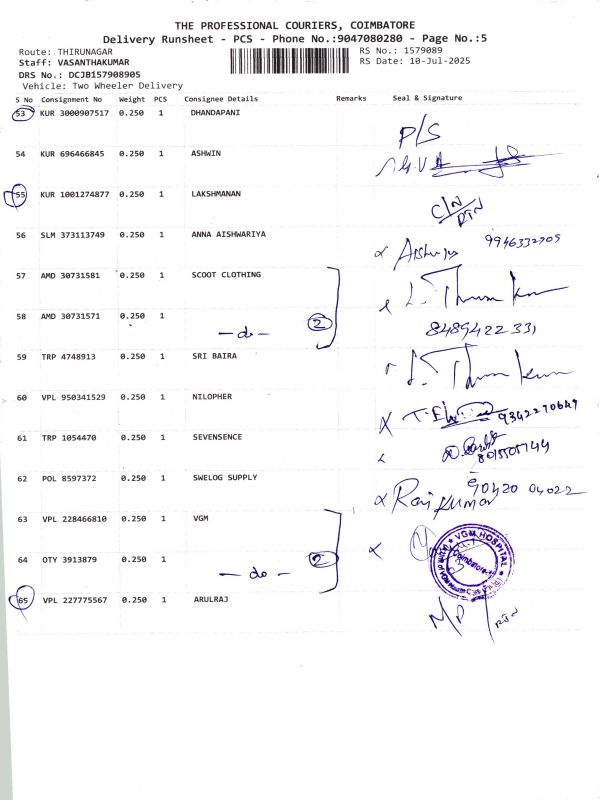 THE PROFESSIONAL COURIERS, COIMBATORE
Delivery Runsheet - PCS - Phone No.:9047080280 - Page No.:5
Route: THIRUNAGAR RS No.: 1579089
Staff: VASANTHAKUMAR RS Date: 10-Jul-2025
DRS No.: DCJB157908905
Vehicle: Two Wheeler Delivery
S No Consignment No Weight PCS Consignee Details Remarks Seal & Signature
53 KUR 3000907517 0.250 1 DHANDAPANI
P/S
54 KUR 696466845 0.250 1 ASHWIN
55 KUR 1001274877 0.250 1 LAKSHMANAN
56 SLM 373113749 0.250 1 ANNA AISHWARIYA
57 AMD 30731581 0.250 1 SCOOT CLOTHING
58 AMD 30731571 0.250 1 - do - 2
8489422331
59 TRP 4748913 0.250 1 SRI BAIRA
60 VPL 950341529 0.250 1 NILOPHER
61 TRP 1054470 0.250 1 SEVENSENCE
62 POL 8597372 0.250 1 SWELOG SUPPLY
Raj Kumar 90420 04022
63 VPL 228466810 0.250 1 VGM
VGM HOSPITAL
Coimbatore
64 OTY 3913879 0.250 1 - do - 2
65 VPL 227775567 0.250 1 ARULRAJ